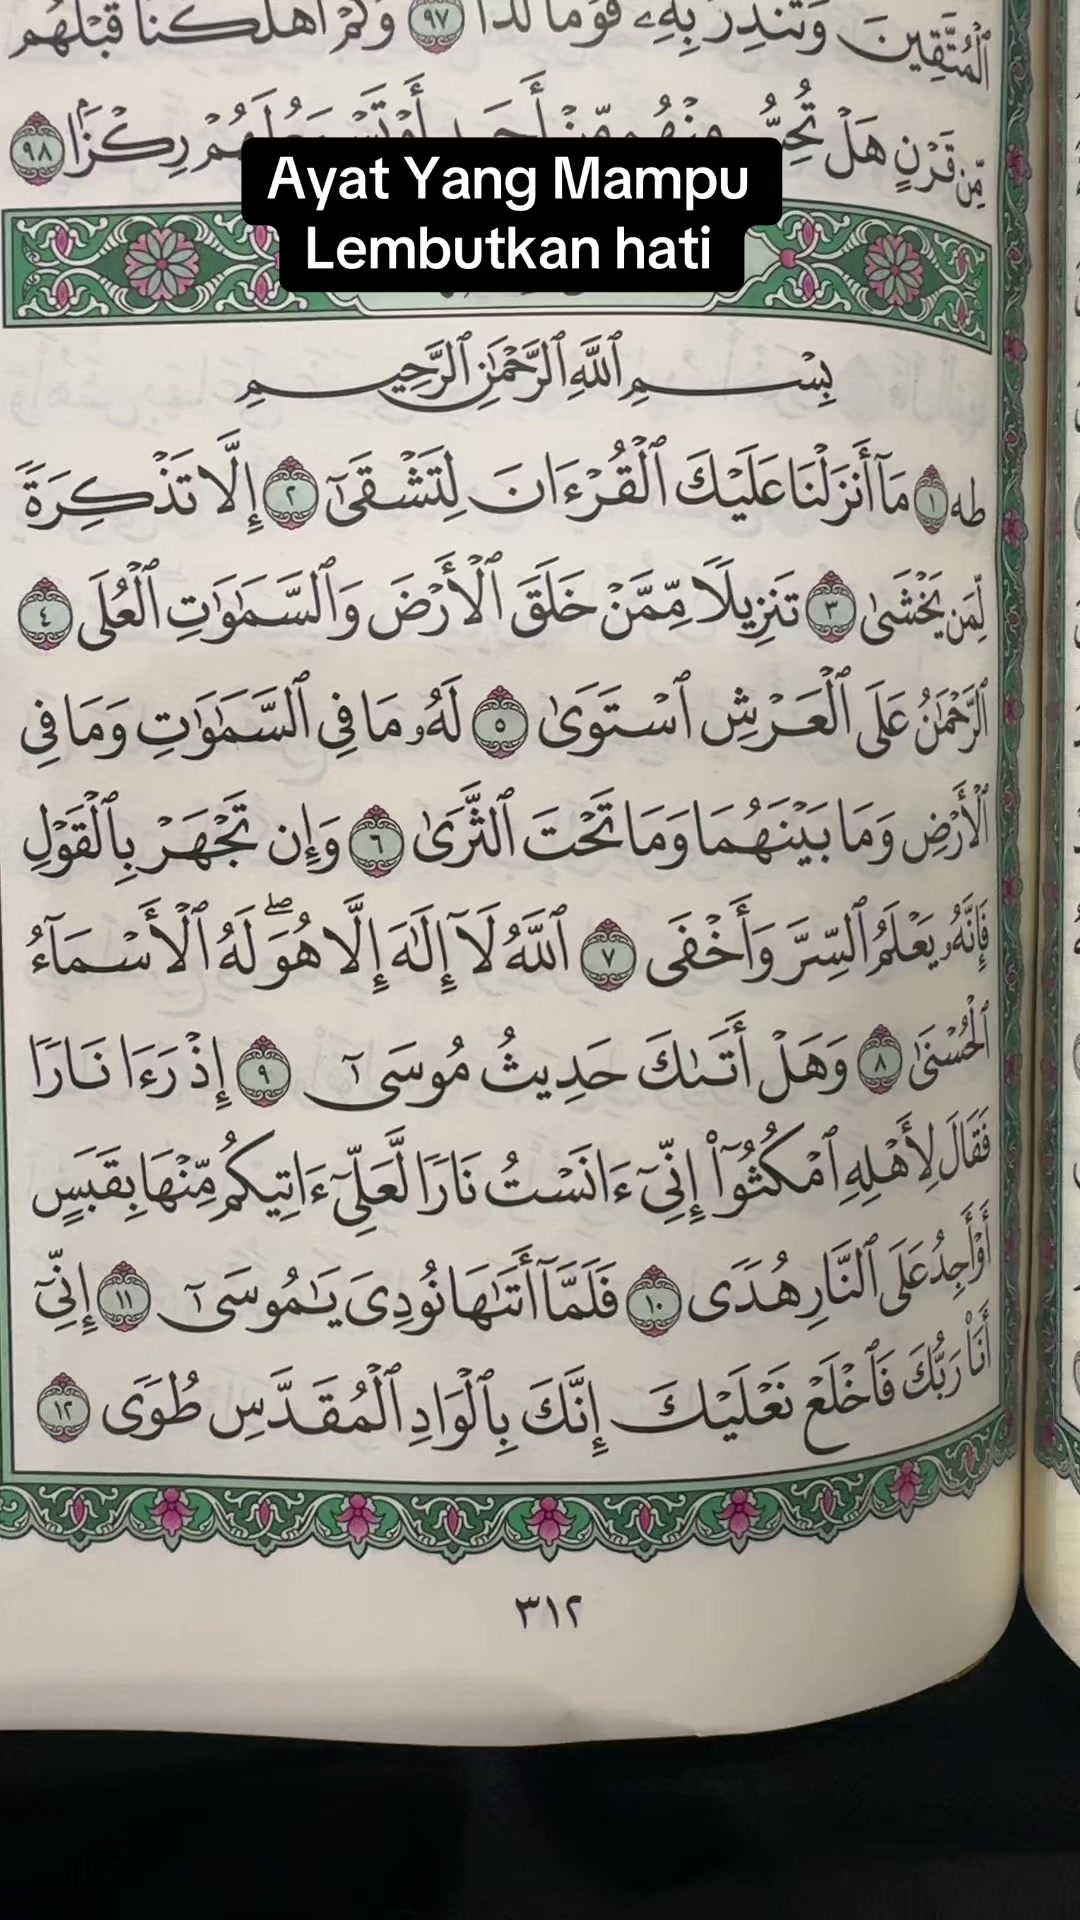 ٱلۡمُتَّقِينَ وَتُنذِرَ بِهِۦ قَوۡمٗا لُّدّٗا ٩٧ وَكَمۡ أَهۡلَكۡنَا قَبۡلَهُم
مِّن قَرۡنٍ هَلۡ تُحِسُّ مِنۡهُم مِّنۡ أَحَدٍ أَوۡ تَسۡمَعُ لَهُمۡ رِكۡزَۢا ٩٨
Ayat Yang Mampu
Lembutkan hati
بِسۡمِ ٱللَّهِ ٱلرَّحۡمَٰنِ ٱلرَّحِيمِ
طه ١ مَآ أَنزَلۡنَا عَلَيۡكَ ٱلۡقُرۡءَانَ لِتَشۡقَىٰٓ ٢ إِلَّا تَذۡكِرَةٗ
لِّمَن يَخۡشَىٰ ٣ تَنزِيلٗا مِّمَّنۡ خَلَقَ ٱلۡأَرۡضَ وَٱلسَّمَٰوَٰتِ ٱلۡعُلَى ٤
ٱلرَّحۡمَٰنُ عَلَى ٱلۡعَرۡشِ ٱسۡتَوَىٰ ٥ لَهُۥ مَا فِي ٱلسَّمَٰوَٰتِ وَمَا فِي
ٱلۡأَرۡضِ وَمَا بَيۡنَهُمَا وَمَا تَحۡتَ ٱلثَّرَىٰ ٦ وَإِن تَجۡهَرۡ بِٱلۡقَوۡلِ
فَإِنَّهُۥ يَعۡلَمُ ٱلسِّرَّ وَأَخۡفَى ٧ ٱللَّهُ لَآ إِلَٰهَ إِلَّا هُوَۖ لَهُ ٱلۡأَسۡمَآءُ
ٱلۡحُسۡنَىٰ ٨ وَهَلۡ أَتَىٰكَ حَدِيثُ مُوسَىٰٓ ٩ إِذۡ رَءَا نَارٗا
فَقَالَ لِأَهۡلِهِ ٱمۡكُثُوٓاْ إِنِّيٓ ءَانَسۡتُ نَارٗا لَّعَلِّيٓ ءَاتِيكُم مِّنۡهَا بِقَبَسٍ
أَوۡ أَجِدُ عَلَى ٱلنَّارِ هُدٗى ١٠ فَلَمَّآ أَتَىٰهَا نُودِيَ يَٰمُوسَىٰٓ ١١ إِنِّيٓ
أَنَا۠ رَبُّكَ فَٱخۡلَعۡ نَعۡلَيۡكَ إِنَّكَ بِٱلۡوَادِ ٱلۡمُقَدَّسِ طُوٗى ١٢
٣١٢